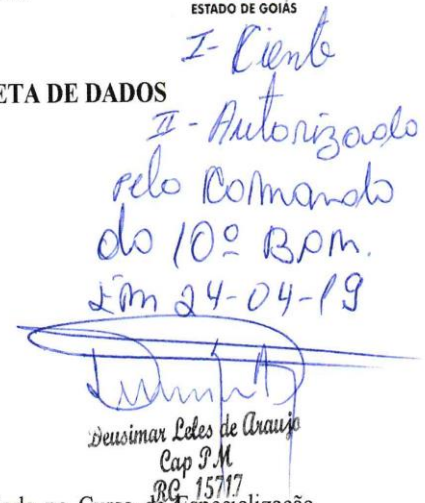 ESTADO DE GOIÁS
I - Ciente
ETA DE DADOS
II - Autorizado
pelo Comando
do 10º BPM.
Em 24-04-19
Deusimar Leles de Araujo
Cap PM
RG 15717
no Curso de Especialização